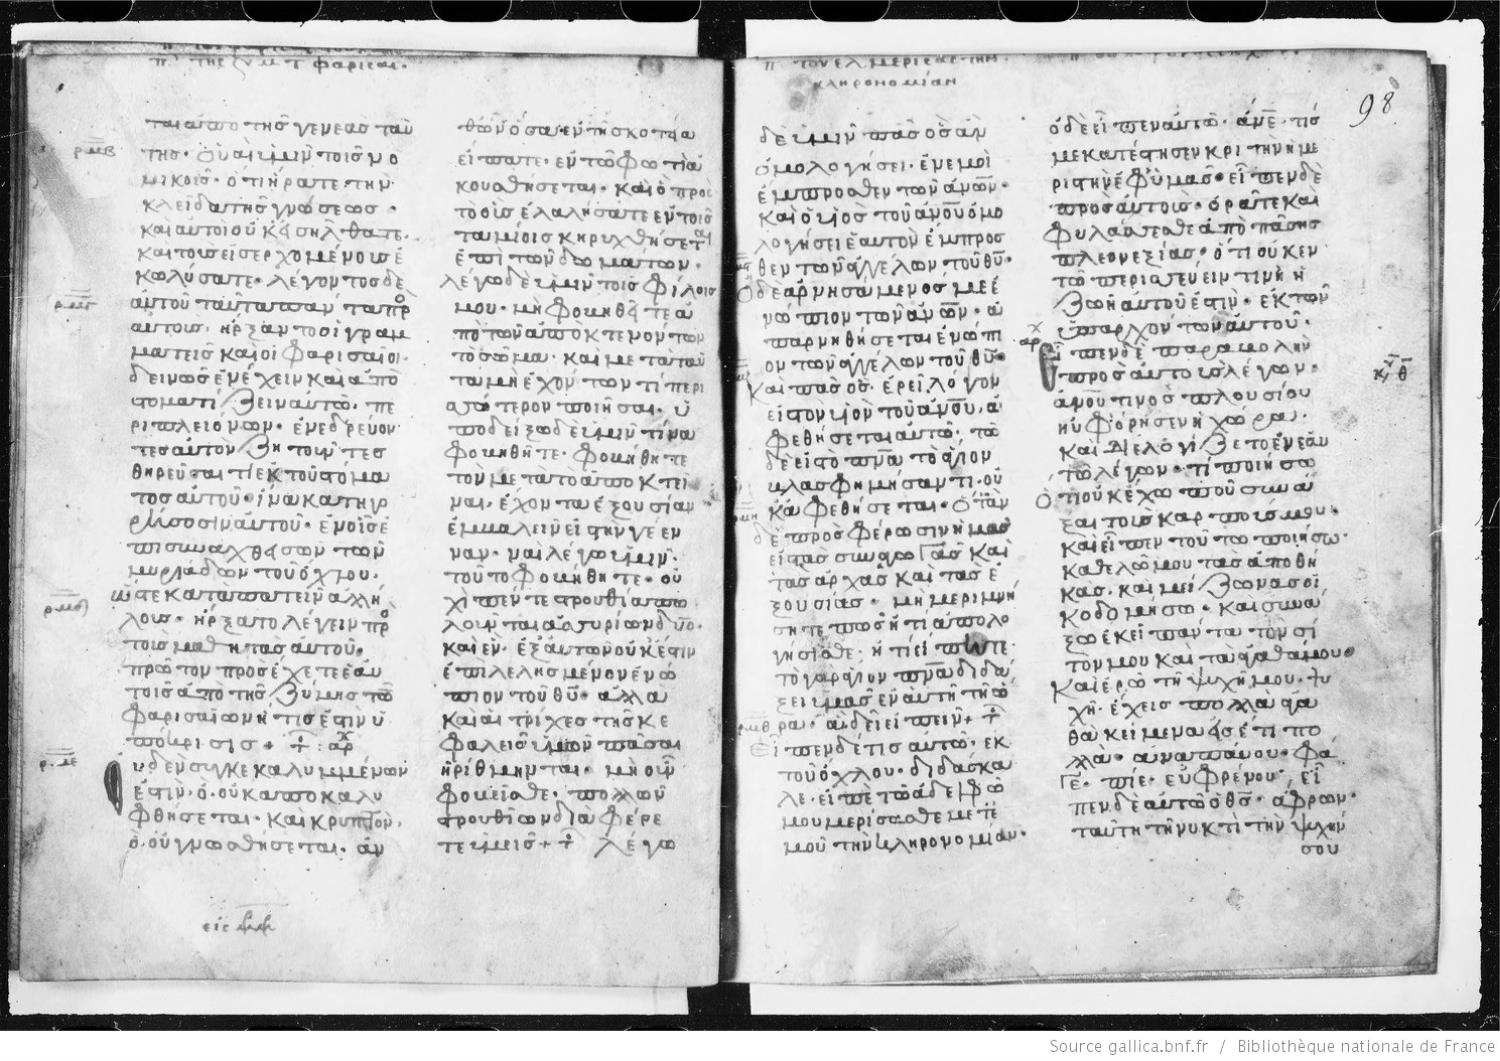 π̅ της ζυμ τ φαρισαι·
ται απο της γενεας ταυ
της· Οὐαι ὑμιν τοις νο
μικοις· ὅτι ἤρατε την
κλειδα της γνώσεως·
και αὐτοι οὐκ
και τους εἰσερχομένους ἐ
κωλύσατε· λέγοντος δε
αὐτοῦ ταῦτα προς
αὐτους· ἤρξαντο οἱ γραμ
ματεις και οἱ Φαρισαιοι·
δεινῶς ἐνέχειν και ἀπο
στοματίζειν αὐτὸν· πε
ρι πλειόνων· ἐνεδρεύον
τες αὐτὸν ζητουντες
θηρεῦσαι τι ἐκ τοῦ στόμα
τος αὐτοῦ· ἵνα κατηγο
ρήσωσιν αὐτοῦ· ἐν οἷς ἐ
πισυναχθεισῶν τῶν
μυριάδων τοῦ ὄχλου·
ὥστε καταπατεῖν ἀλλή
λους· ἤρξατο λέγειν προς
τους μαθητας αὐτοῦ·
πρῶτον προσέχετε ἑαυ
τοις ἀπο της ζύμης τῶν
Φαρισαίων ἥτις ἐστιν ὑ
πόκρισις +
οὐδεν συγκεκαλυμμένον
ἐστιν· ὃ οὐκ ἀποκαλυ
φθήσεται· και κρυπτὸν·
ὃ οὐ γνωσθήσεται· ἀν
θῶν ὅσα ἐν τῆ σκοτια
εἴπατε· ἐν τῶ Φωτι ἀ
κουσθήσεται· και ὃ προς
τὸ οὖς ἐλαλήσατε ἐν τοις
ταμείοις κηρυχθήσεται
ἐπι τῶν δωμάτων·
λέγω δε ὑμιν τοις Φίλοις
μου· μη Φοβηθῆτε ἀ
πὸ τῶν ἀποκτενόντων
τὸ σῶμα· και μετα ταῦ
τα μη ἐχόντων τι περι
σσότερον ποιῆσαι· ὑ
ποδείξω δε ὑμιν τίνα
Φοβηθῆτε· Φοβήθητε
τὸν μετα τὸ ἀποκτεῖ
ναι· ἔχοντα ἐξουσίαν
ἐμβαλεῖν εἰς την γέεν
ναν· ναὶ λέγω ὑμιν·
τοῦτον Φοβήθητε· οὐ
χι πέντε στρουθία πω
λουνται ἀσσαρίων δύο·
και ἓν ἐξ αὐτῶν οὐκ ἔστιν
ἐπιλελησμένον ἐνώ
πιον τοῦ θυ̅· ἀλλα
και αἱ τρίχες της κε
Φαλης ὑμῶν πᾶσαι
ἠρίθμηνται· μη οὖν
Φοβεῖσθε· πολλῶν
στρουθίων διαΦέρε
τε ὑμεις + λέγω
98
κληρονομίαν
δε ὑμιν πᾶς ὃς ἂν
ὁμολογήσει· ἐν ἐμοὶ
ἔμπροσθεν τῶν ἀνω̅ν·
και ὁ υἱὸς τοῦ ἀνου̅ ὁμο
λογήσει ἑαυτὸν ἔμπροσ
θεν τῶν ἀγγέλων τοῦ θυ̅·
Ὁ δε ἀρνησάμενός με ἐ
νώπιον τῶν ἀνω̅ν· ἀ
παρνηθήσεται ἐνώπι
ον τῶν ἀγγέλων τοῦ θυ̅·
Και πᾶς ὃς ἐρεῖ λόγον
εἰς τὸν υἱὸν τοῦ ἀνου̅· ἀ
Φεθήσεται αὐτῶ· τῶ
δε εἰς τὸ πνα̅ τὸ ἅγιον
βλασΦημήσαντι· οὐ
κ ἀΦεθήσεται· Ὅταν
δε προσΦέρωσιν ἡμας
εἰς τας συναγωγας και
τας ἀρχας και τας ἐ
ξουσίας· μη μεριμνή
σητε πῶς ἢ τί ἀπολο
γήσησθε· ἢ τί εἴπητε·
τὸ γαρ ἅγιον πνα̅ διδά
ξει ὑμας ἐν αὐτῆ τῆ ὥ
ρα· ἃ δεῖ εἰπεῖν +
Εἶπεν δέ τις αὐτῶ· ἐκ
τοῦ ὄχλου· διδάσκα
λε· εἰπὲ τῶ ἀδελΦῶ
μου μερίσασθαι μετ ἐ
μοῦ την κληρονομίαν·
ὁ δε εἶπεν αὐτῶ· ἀν̅ε· τίς
με κατέστησεν κριτην ἢ με
ριστην ἐΦ ὑμας· εἶπεν δε
προς αὐτους· ὁρᾶτε και
Φυλάσσεσθε ἀπὸ πάσης
πλεονεξίας· ὅτι οὐκ ἐν
τῶ περισσεύειν τινὶ ἡ
ζωὴ αὐτοῦ ἐστιν· ἐκ τῶν
ὑπαρχόντων αὐτοῦ·
Εἶπεν δε παραβολην
προς αὐτους λέγων·
ἀνου̅ τινος πλουσίου
ηὐΦόρησεν ἡ χώρα·
και διελογίζετο ἐν ἑαυ
τῶ λέγων· τί ποιήσω
ὅτι οὐκ ἔχω ποῦ συνά
ξαι τους καρπους μου·
και εἶπεν τοῦτο ποιήσω·
καθελῶ μου τας ἀποθή
κας· και μείζωνας οἰ
κοδομήσω· και συνά
ξω ἐκεῖ πάντα τον σῖ
τόν μου και τα ἀγαθά μου·
Και ἐρῶ τῆ ψυχῆ μου· ψυ
χη· ἔχεις πολλα ἀγα
θα κείμενα εἰς ἔτι πο
λλα· ἀναπαύου· Φά
γε· πίε· εὐΦραίνου· εἶ
πεν δε αὐτῶ ὁ θς̅· ἄφρων·
ταύτη τῆ νυκτι την ψυχήν
σου
Source gallica.bnf.fr / Bibliothèque nationale de France